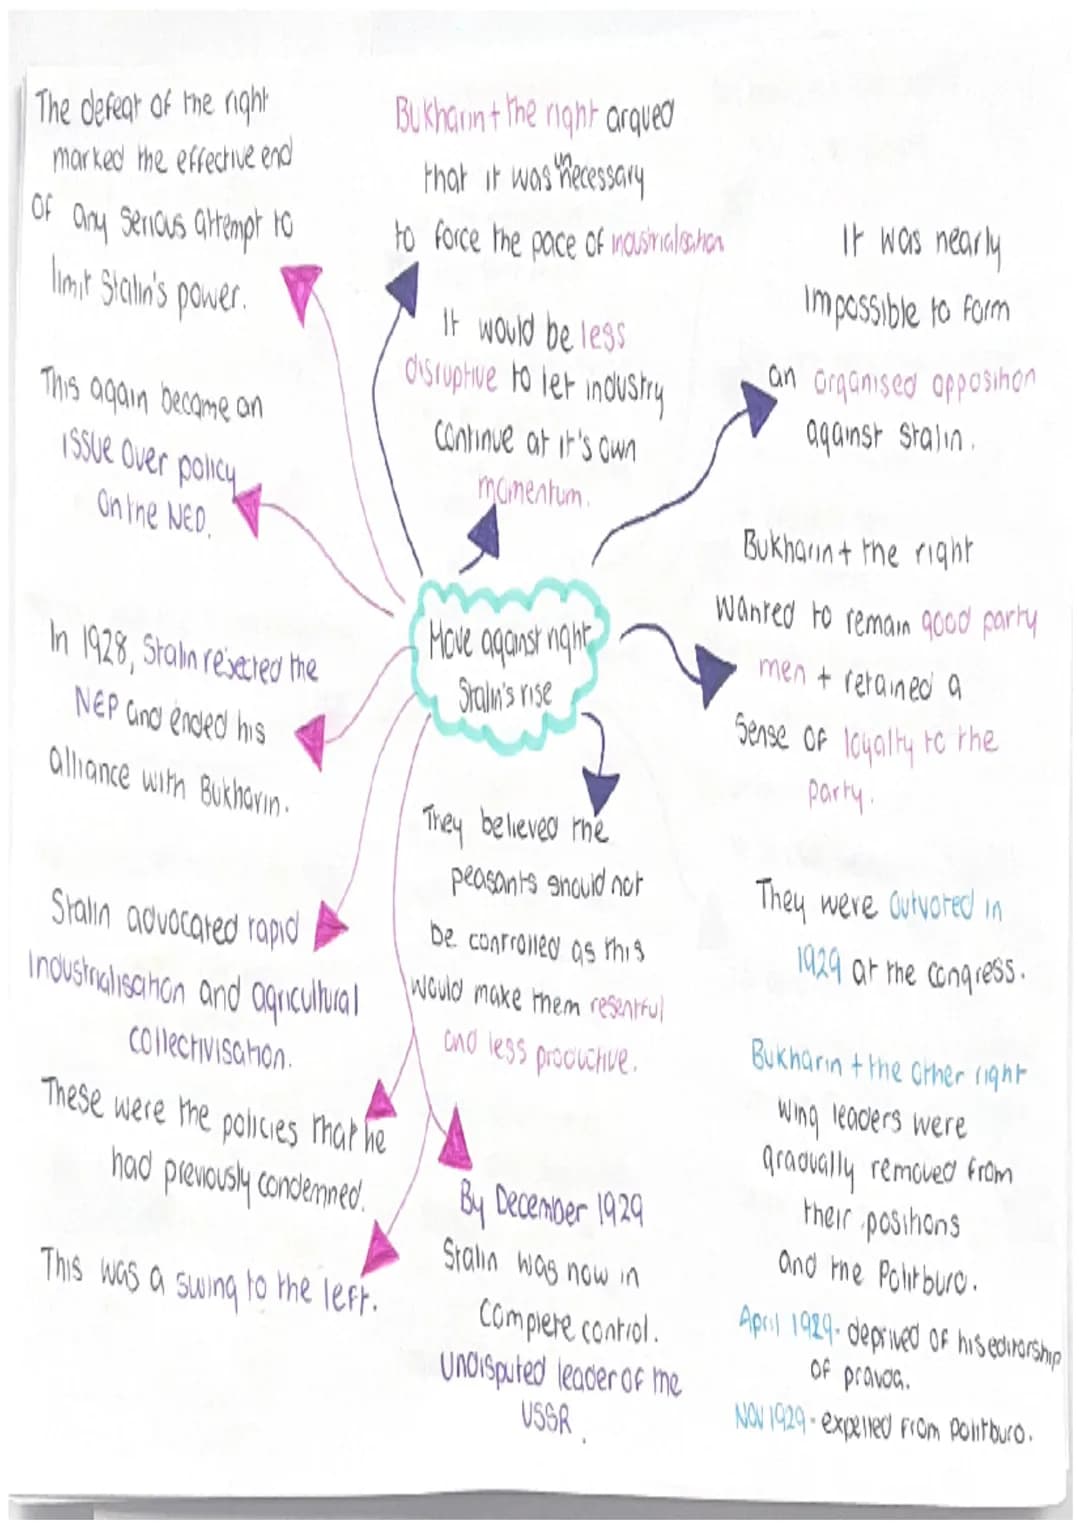 The defeat of the right
marked the effective end
of any serious attempt to
limit Stalin's power.
This again became an
issue over policy
on the NEP.
In 1928, Stalin rejected the
NEP and ended his
alliance with Bukharin.
Stalin advocated rapid
industrialisation and agricultural
collectivisation.
These were the policies that he
had previously condemned.
This was a swing to the left.
Bukharin + the right argued
that it was unnecessary
to force the pace of industrialisation
It would be less
disruptive to let industry
continue at it's own
momentum.
Move against right
Stalin's rise
They believed the
peasants should not
be controlled as this
would make them resentful
and less productive.
By December 1929
Stalin was now in
complete control.
Undisputed leader of the
USSR.
It was nearly
impossible to form
an organised opposition
against Stalin.
Bukharin + the right
wanted to remain good party
men + retained a
sense of loyalty to the
party.
They were outvoted in
1929 at the congress.
Bukharin + the other right
wing leaders were
gradually removed from
their positions
and the Politburo.
April 1929 - deprived of his editorship
of pravda.
Nov 1929 - expelled from politburo.